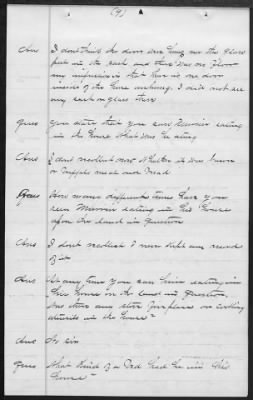 (9)
Ans I don't think the door was hung nor the glass
put in the sash and there was no floor
my impression is that there is no door
inside of the house anything. I did not see
any sash or glass there
Ques You state that you saw Marvin eating
in the house What was he eating
Ans I don't recollect now whether it was bacon
or buffalo meat and bread
Ques How many different times have you
seen Marvin eating in this house
upon the land in question
Ans I dont recollect I never kept any record
of it
Ques At any time you saw him eating in
this house on the land in question,
was there any stove fireplace or cooking
utensils in the house?
Ans No sir
Ques What kind of a bed had he in this
house?